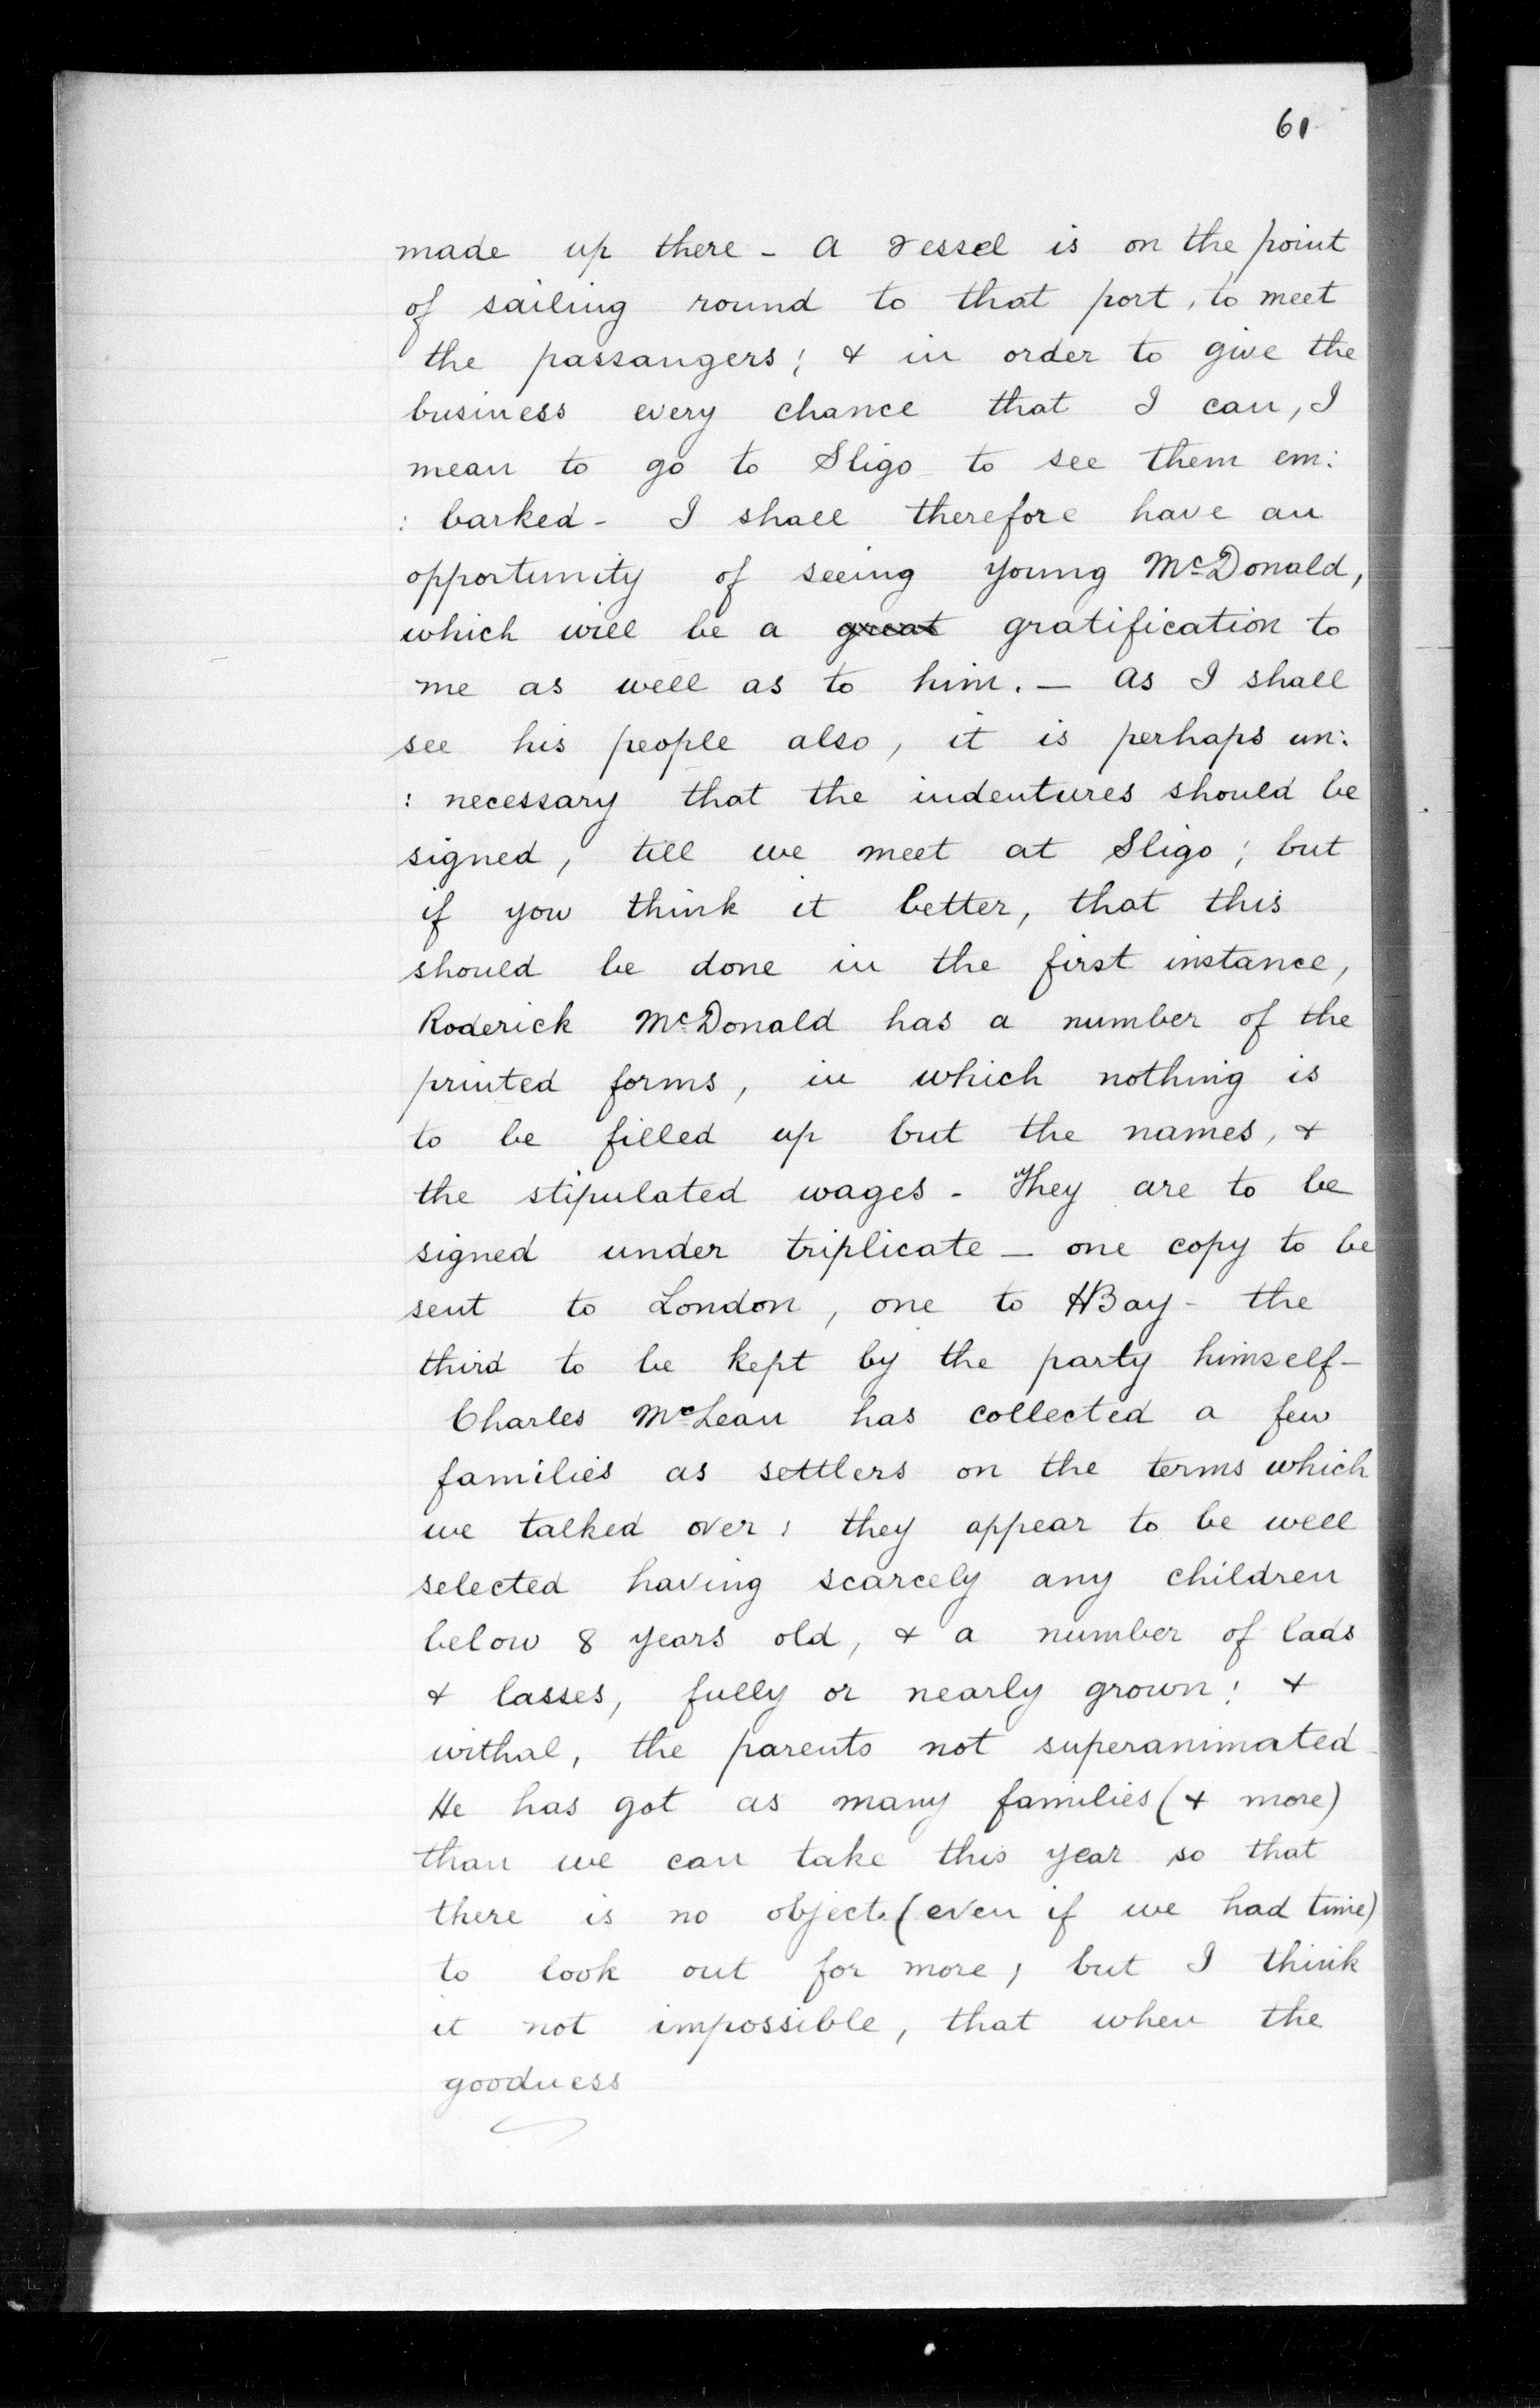 61
made up there - A vessel is on the point
of sailing round to that port, to meet
the passangers; & in order to give the
business every chance that I can, I
mean to go to Sligo to see them em:
: barked - I shall therefore have an
opportunity of seeing young McDonald,
which will be a great gratification to
me as well as to him. — As I shall
see his people also, it is perhaps un:
: necessary that the indentures should be
signed, till we meet at Sligo; but
if you think it better, that this
should be done in the first instance,
Roderick McDonald has a number of the
printed forms, in which nothing is
to be filled up but the names, &
the stipulated wages - They are to be
signed under triplicate — one copy to be
sent to London, one to HBay - the
third to be kept by the party himself -
Charles McLean has collected a few
families as settlers on the terms which
we talked over; they appear to be well
selected having scarcely any children
below 8 years old, & a number of lads
& lasses, fully or nearly grown; &
withal, the parents not superanimated
He has got as many families (& more)
than we can take this year so that
there is no object (even if we had time)
to look out for more; but I think
it not impossible, that when the
goodness